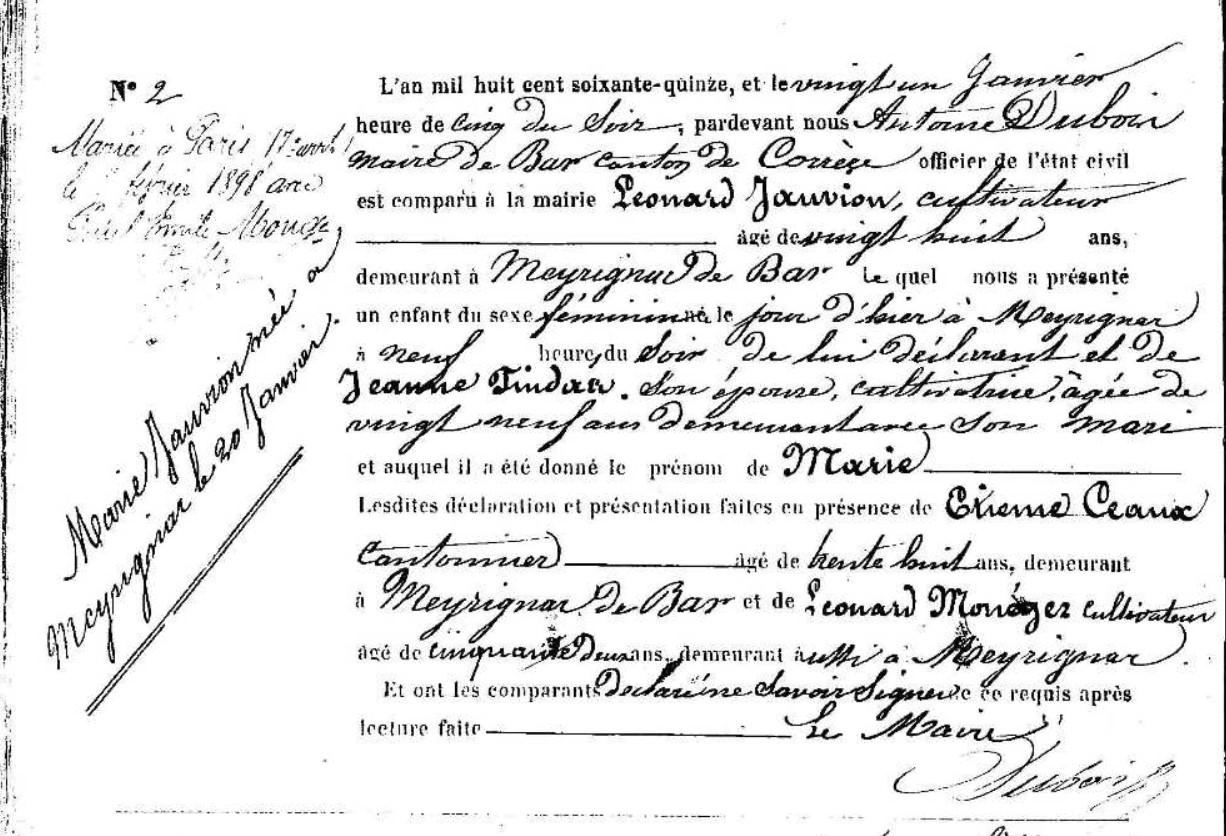 N° 2
Mariée à Paris 17e arrt
le février 1898 avec
Emile
Marie Jauvion née à
Meyrignac le 20 Janvier.
L'an mil huit cent soixante-quinze, et le vingt un Janvier
heure de cinq du Soir, pardevant nous Antoine Dubois
maire de Bar canton de Corrèze officier de l'état civil
est comparu à la mairie Leonard Jauvion, cultivateur
âgé de vingt huit ans,
demeurant à Meyrignac de Bar le quel nous a présenté
un enfant du sexe féminin né le jour d'hier à Meyrignac
à neuf heure, du Soir de lui déclarant et de
Jeanne son épouse, cultivatrice, âgée de
vingt neuf ans demeurant avec son mari
et auquel il a été donné le prénom de Marie
Lesdites déclaration et présentation faites en présence de Etienne Ceaux
cantonnier âgé de trente huit ans, demeurant
à Meyrignac de Bar et de Leonard cultivateur
âgé de cinquante deux ans, demeurant aussi à Meyrignac.
Et ont les comparants déclaré ne savoir signer de ce requis après
lecture faite Le Maire
Dubois